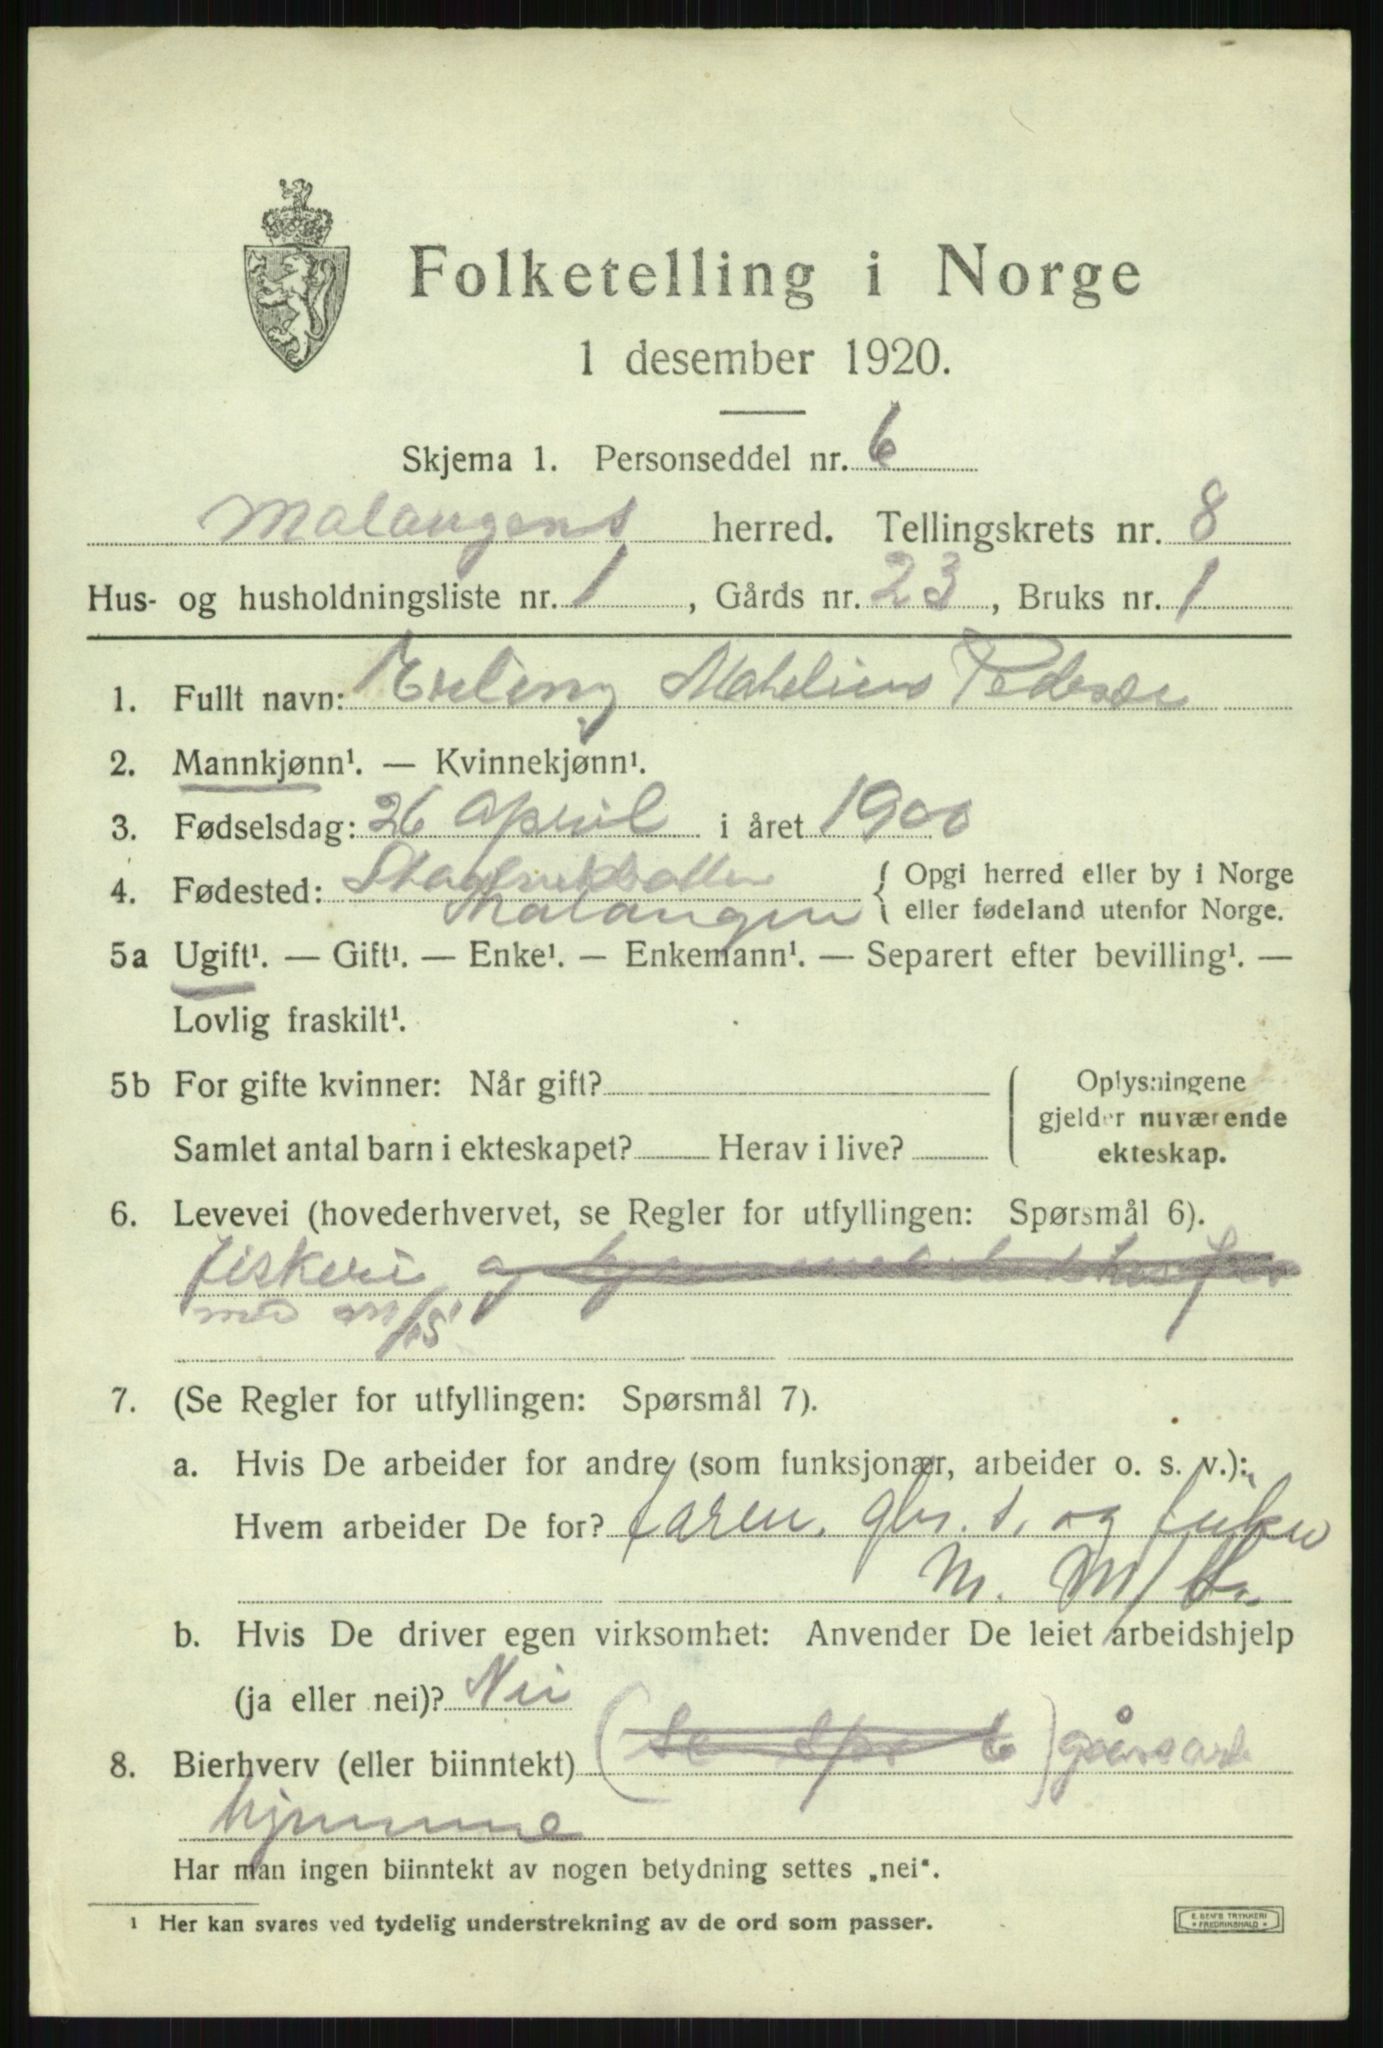 Folketelling i Norge
1 desember 1920.
Skjema 1. Personseddel nr. 6
Malangens herred. Tellingskrets nr. 8
Hus- og husholdningsliste nr. 1, Gårds nr. 23, Bruks nr. 1
1. Fullt navn: Erling Mahelius Pedersen
2. Mannkjønn¹. — Kvinnekjønn¹.
3. Fødselsdag: 26 april i året 1900
4. Fødested: Malangen { Opgi herred eller by i Norge
eller fødeland utenfor Norge.
5a Ugift¹. — Gift¹. — Enke¹. — Enkemann¹. — Separert efter bevilling¹. —
Lovlig fraskilt¹.
5b For gifte kvinner: Når gift? ( Oplysningene
gjelder nuværende
Samlet antal barn i ekteskapet? Herav i live? ekteskap.
6. Levevei (hovederhvervet, se Regler for utfyllingen: Spørsmål 6).
fiskeri og
med m/
7. (Se Regler for utfyllingen: Spørsmål 7).
a. Hvis De arbeider for andre (som funksjonær, arbeider o. s. v.):
Hvem arbeider De for? faren, gbr. s. og
m. M/
b. Hvis De driver egen virksomhet: Anvender De leiet arbeidshjelp
(ja eller nei)? Nei
8. Bierhverv (eller biinntekt) (se spr 6) gårsarb
hjemme
Har man ingen biinntekt av nogen betydning settes „nei“.
¹ Her kan svares ved tydelig understrekning av de ord som passer.
E. SEM'S TRYKKERI
* FREDRIKSHALD *